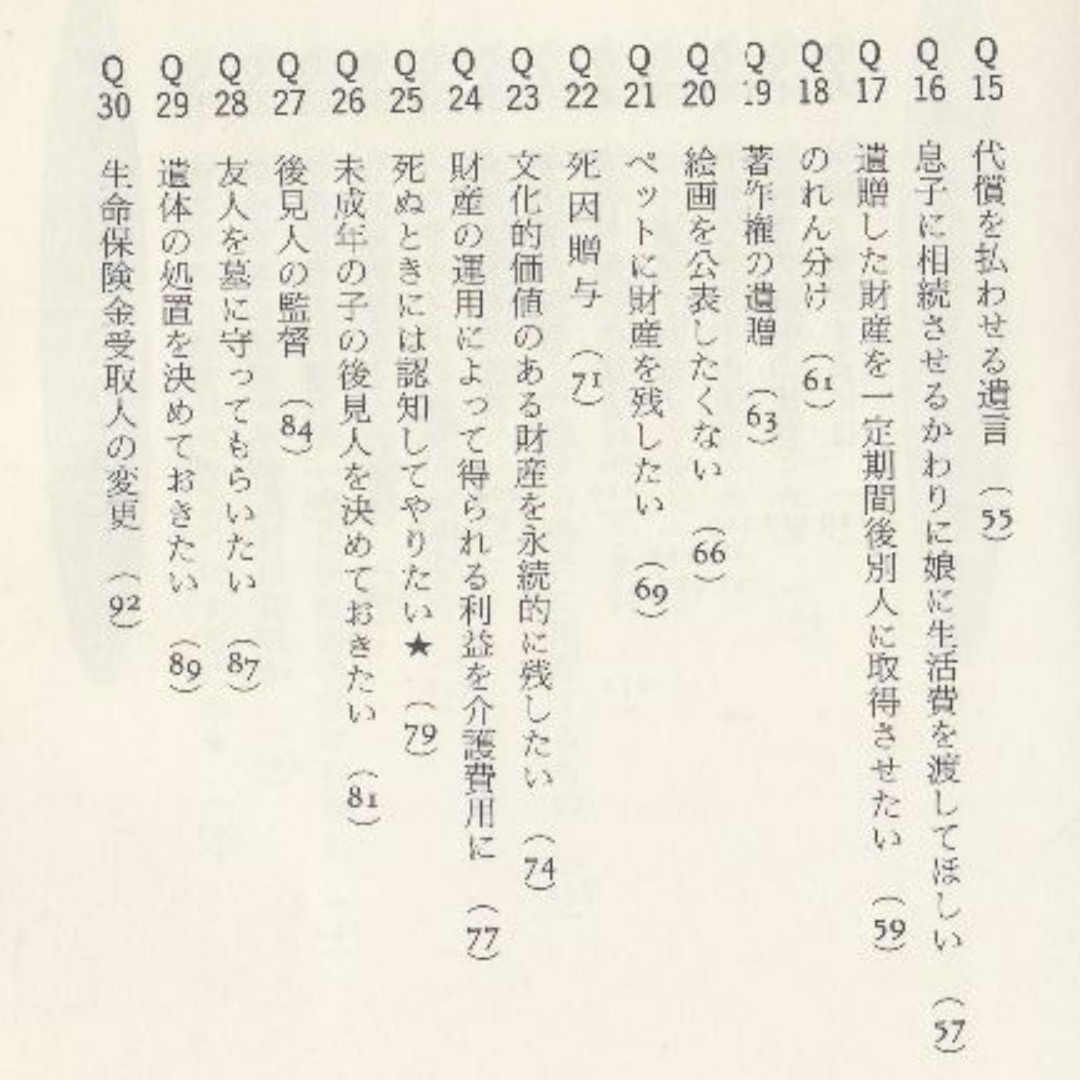 Q15 代償を払わせる遺言 (55)
Q16 息子に相続させるかわりに娘に生活費を渡してほしい (57)
Q17 遺贈した財産を一定期間後別人に取得させたい (59)
Q18 のれん分け (61)
Q19 著作権の遺贈 (63)
Q20 絵画を公表したくない (66)
Q21 ペットに財産を残したい (69)
Q22 死因贈与 (71)
Q23 文化的価値のある財産を永続的に残したい (74)
Q24 財産の運用によって得られる利益を介護費用に (77)
Q25 死ぬときには認知してやりたい★ (79)
Q26 未成年の子の後見人を決めておきたい (81)
Q27 後見人の監督 (84)
Q28 友人を墓に守ってもらいたい (87)
Q29 遺体の処置を決めておきたい (89)
Q30 生命保険金受取人の変更 (92)